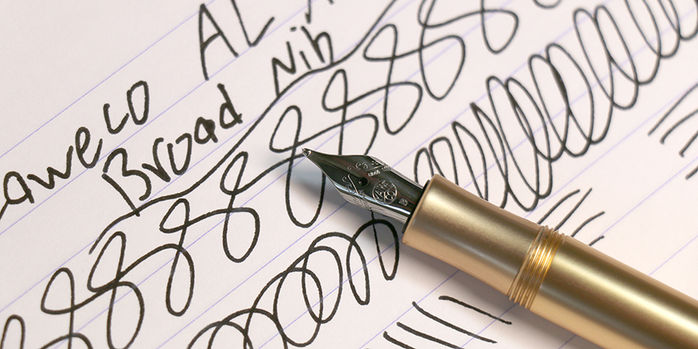 AL
aweco
Broad Nib